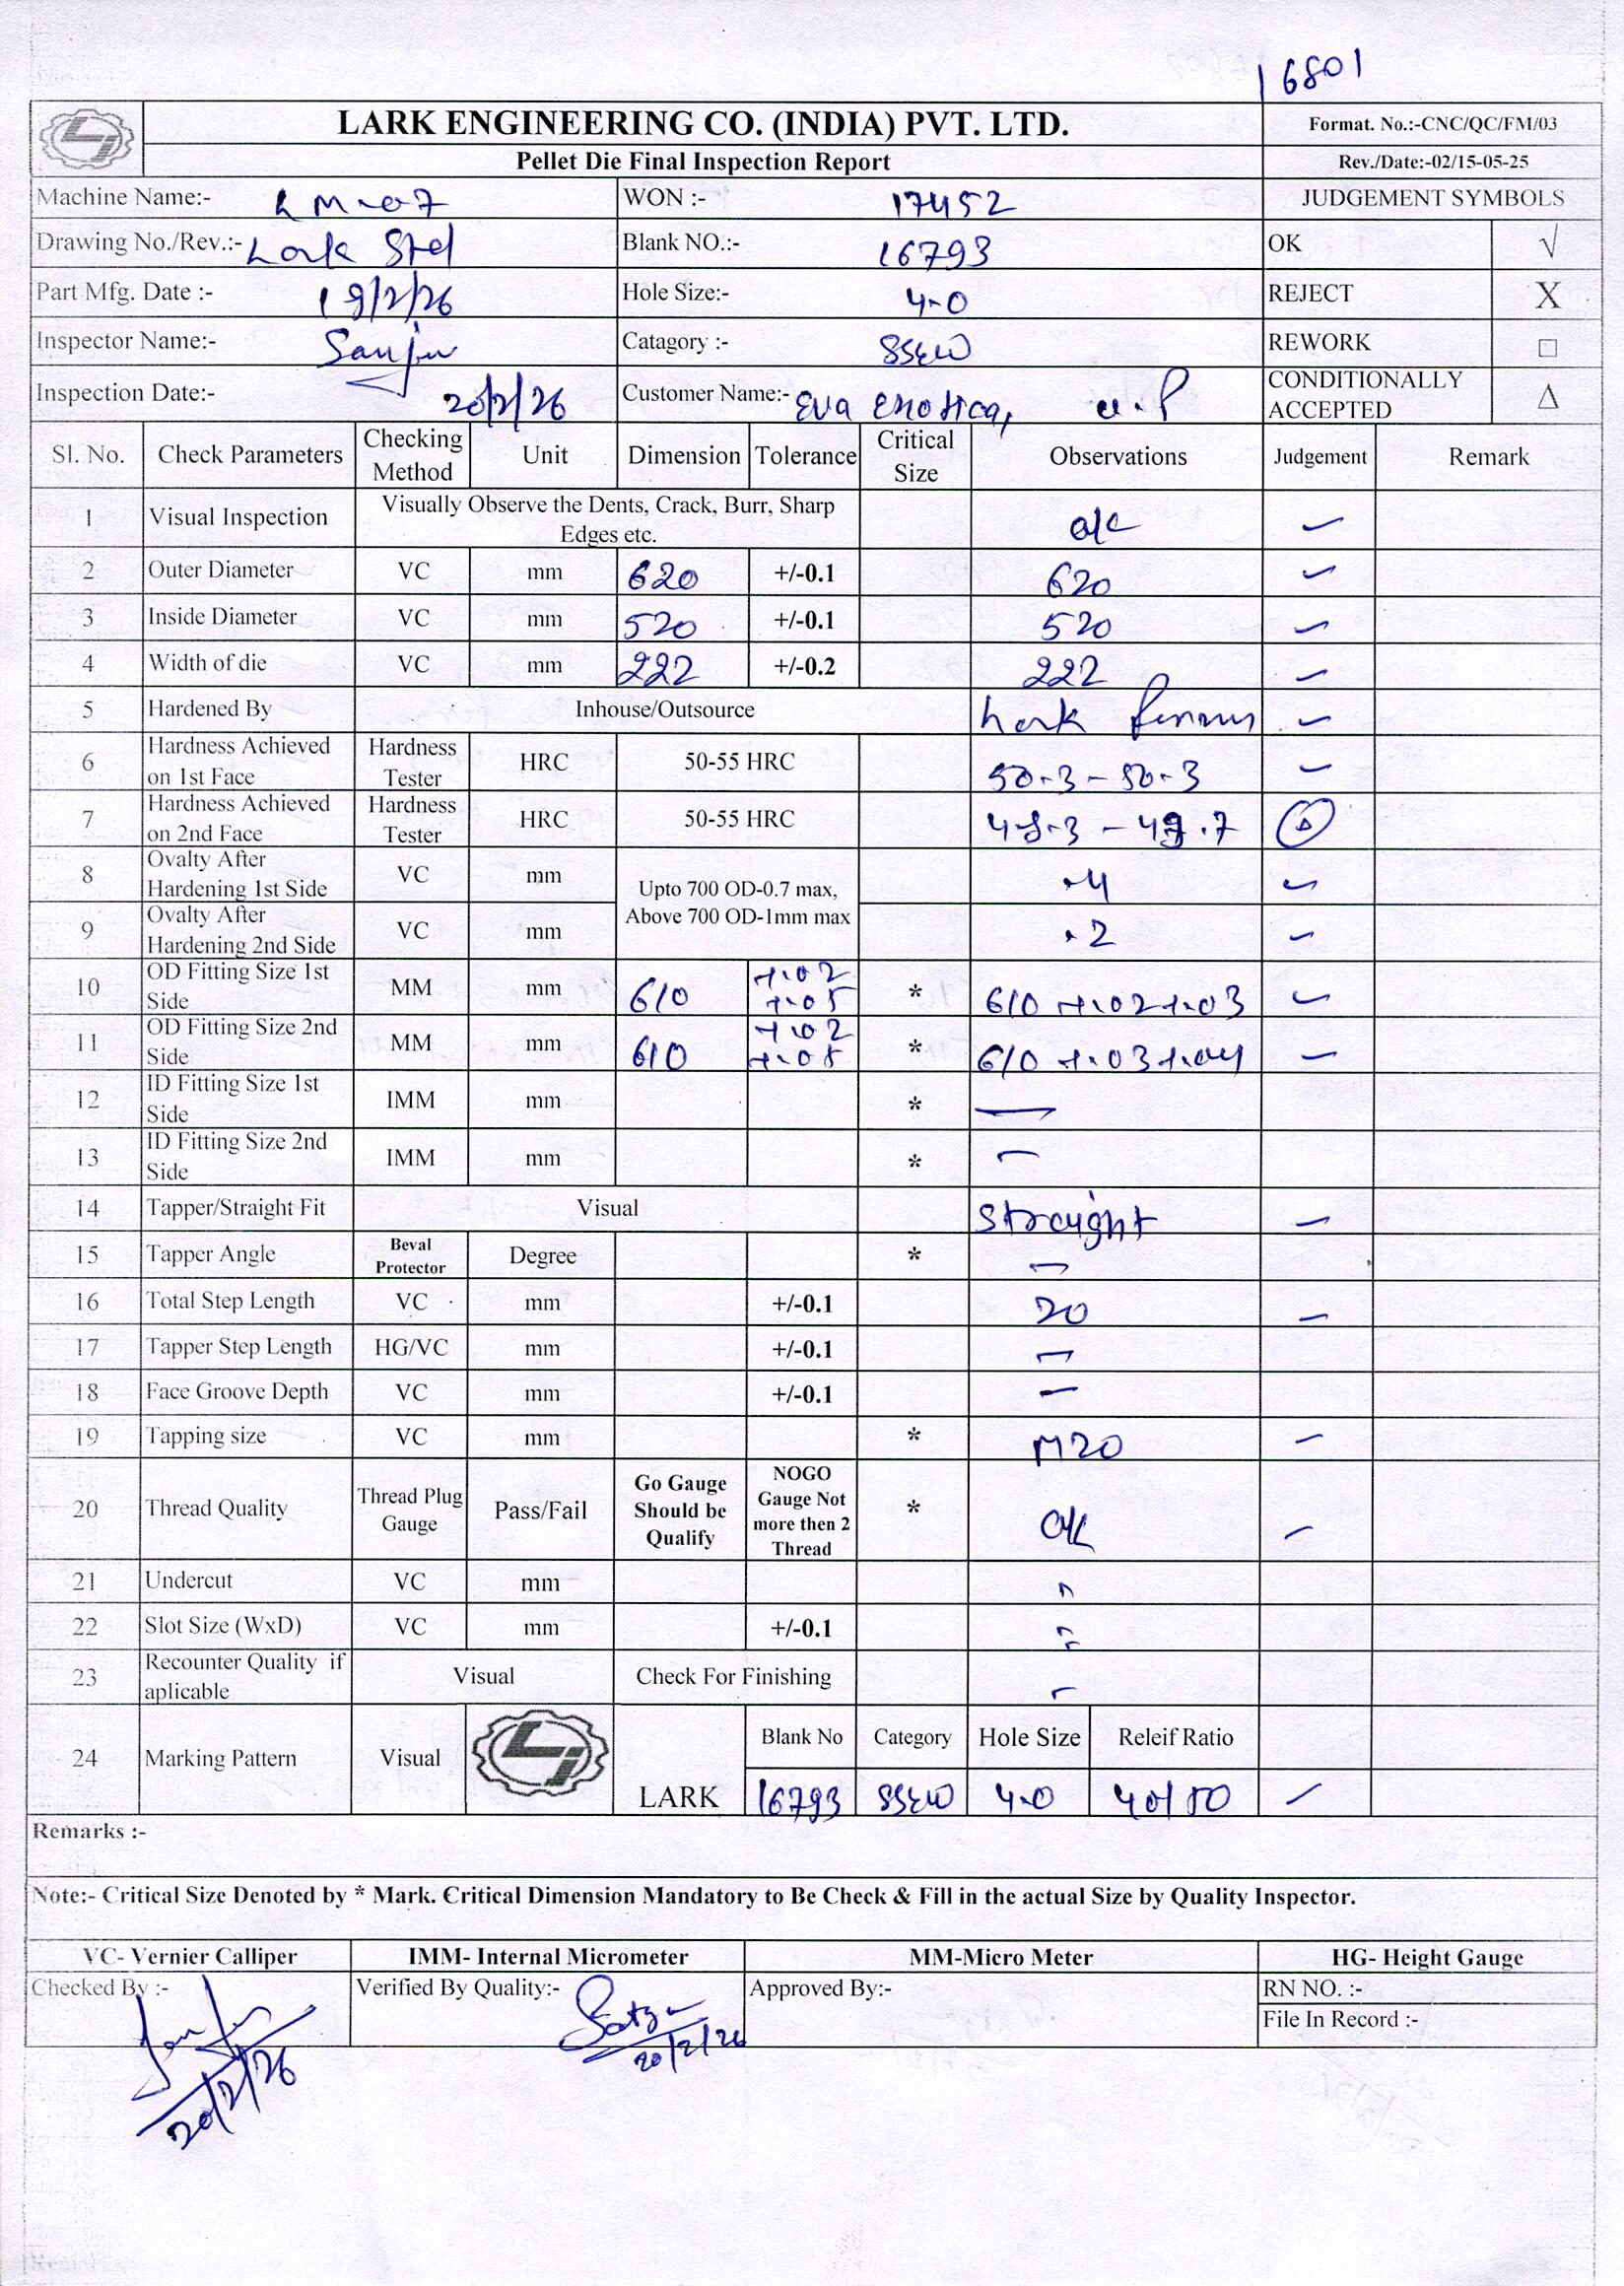 16801
LARK ENGINEERING CO. (INDIA) PVT. LTD.
Format. No.:-CNC/QC/FM/03
Pellet Die Final Inspection Report
Rev./Date:-02/15-05-25
Machine Name:- LM-07 WON :- 17452 JUDGEMENT SYMBOLS
Drawing No./Rev.:- Lark Std Blank NO.:- 16793 OK √
Part Mfg. Date :- 19/2/26 Hole Size:- 4.0 REJECT X
Inspector Name:- Sanju Catagory :- SSEW REWORK □
Inspection Date:- 20/2/26 Customer Name:- Eva Exotica, U.P CONDITIONALLY ACCEPTED Δ
Sl. No. Check Parameters Checking Method Unit Dimension Tolerance Critical Size Observations Judgement Remark
1 Visual Inspection Visually Observe the Dents, Crack, Burr, Sharp Edges etc. o/k
2 Outer Diameter VC mm 620 +/-0.1 620
3 Inside Diameter VC mm 520 +/-0.1 520
4 Width of die VC mm 222 +/-0.2 222
5 Hardened By Inhouse/Outsource Lark
6 Hardness Achieved on 1st Face Hardness Tester HRC 50-55 HRC 50.3 - 50.3
7 Hardness Achieved on 2nd Face Hardness Tester HRC 50-55 HRC 48.3 - 49.7 Δ
8 Ovalty After Hardening 1st Side VC mm Upto 700 OD-0.7 max, Above 700 OD-1mm max .4
9 Ovalty After Hardening 2nd Side VC mm .2
10 OD Fitting Size 1st Side MM mm 610 +.02 +.05 * 610 +.02 +.03
11 OD Fitting Size 2nd Side MM mm 610 +.02 +.05 * 610 +.03 +.04
12 ID Fitting Size 1st Side IMM mm * —
13 ID Fitting Size 2nd Side IMM mm * —
14 Tapper/Straight Fit Visual Straight
15 Tapper Angle Beval Protector Degree * —
16 Total Step Length VC mm +/-0.1 20
17 Tapper Step Length HG/VC mm +/-0.1 —
18 Face Groove Depth VC mm +/-0.1 —
19 Tapping size VC mm * M20
20 Thread Quality Thread Plug Gauge Pass/Fail Go Gauge Should be Qualify NOGO Gauge Not more then 2 Thread * O/K
21 Undercut VC mm
22 Slot Size (WxD) VC mm +/-0.1
23 Recounter Quality if aplicable Visual Check For Finishing —
24 Marking Pattern Visual LARK Blank No Category Hole Size Releif Ratio
16793 SSEW 4.0 40/50
Remarks :-
Note:- Critical Size Denoted by * Mark. Critical Dimension Mandatory to Be Check & Fill in the actual Size by Quality Inspector.
VC- Vernier Calliper IMM- Internal Micrometer MM-Micro Meter HG- Height Gauge
Checked By :- Verified By Quality:- Approved By:- RN NO. :-
File In Record :-
20/2/26
20/2/26